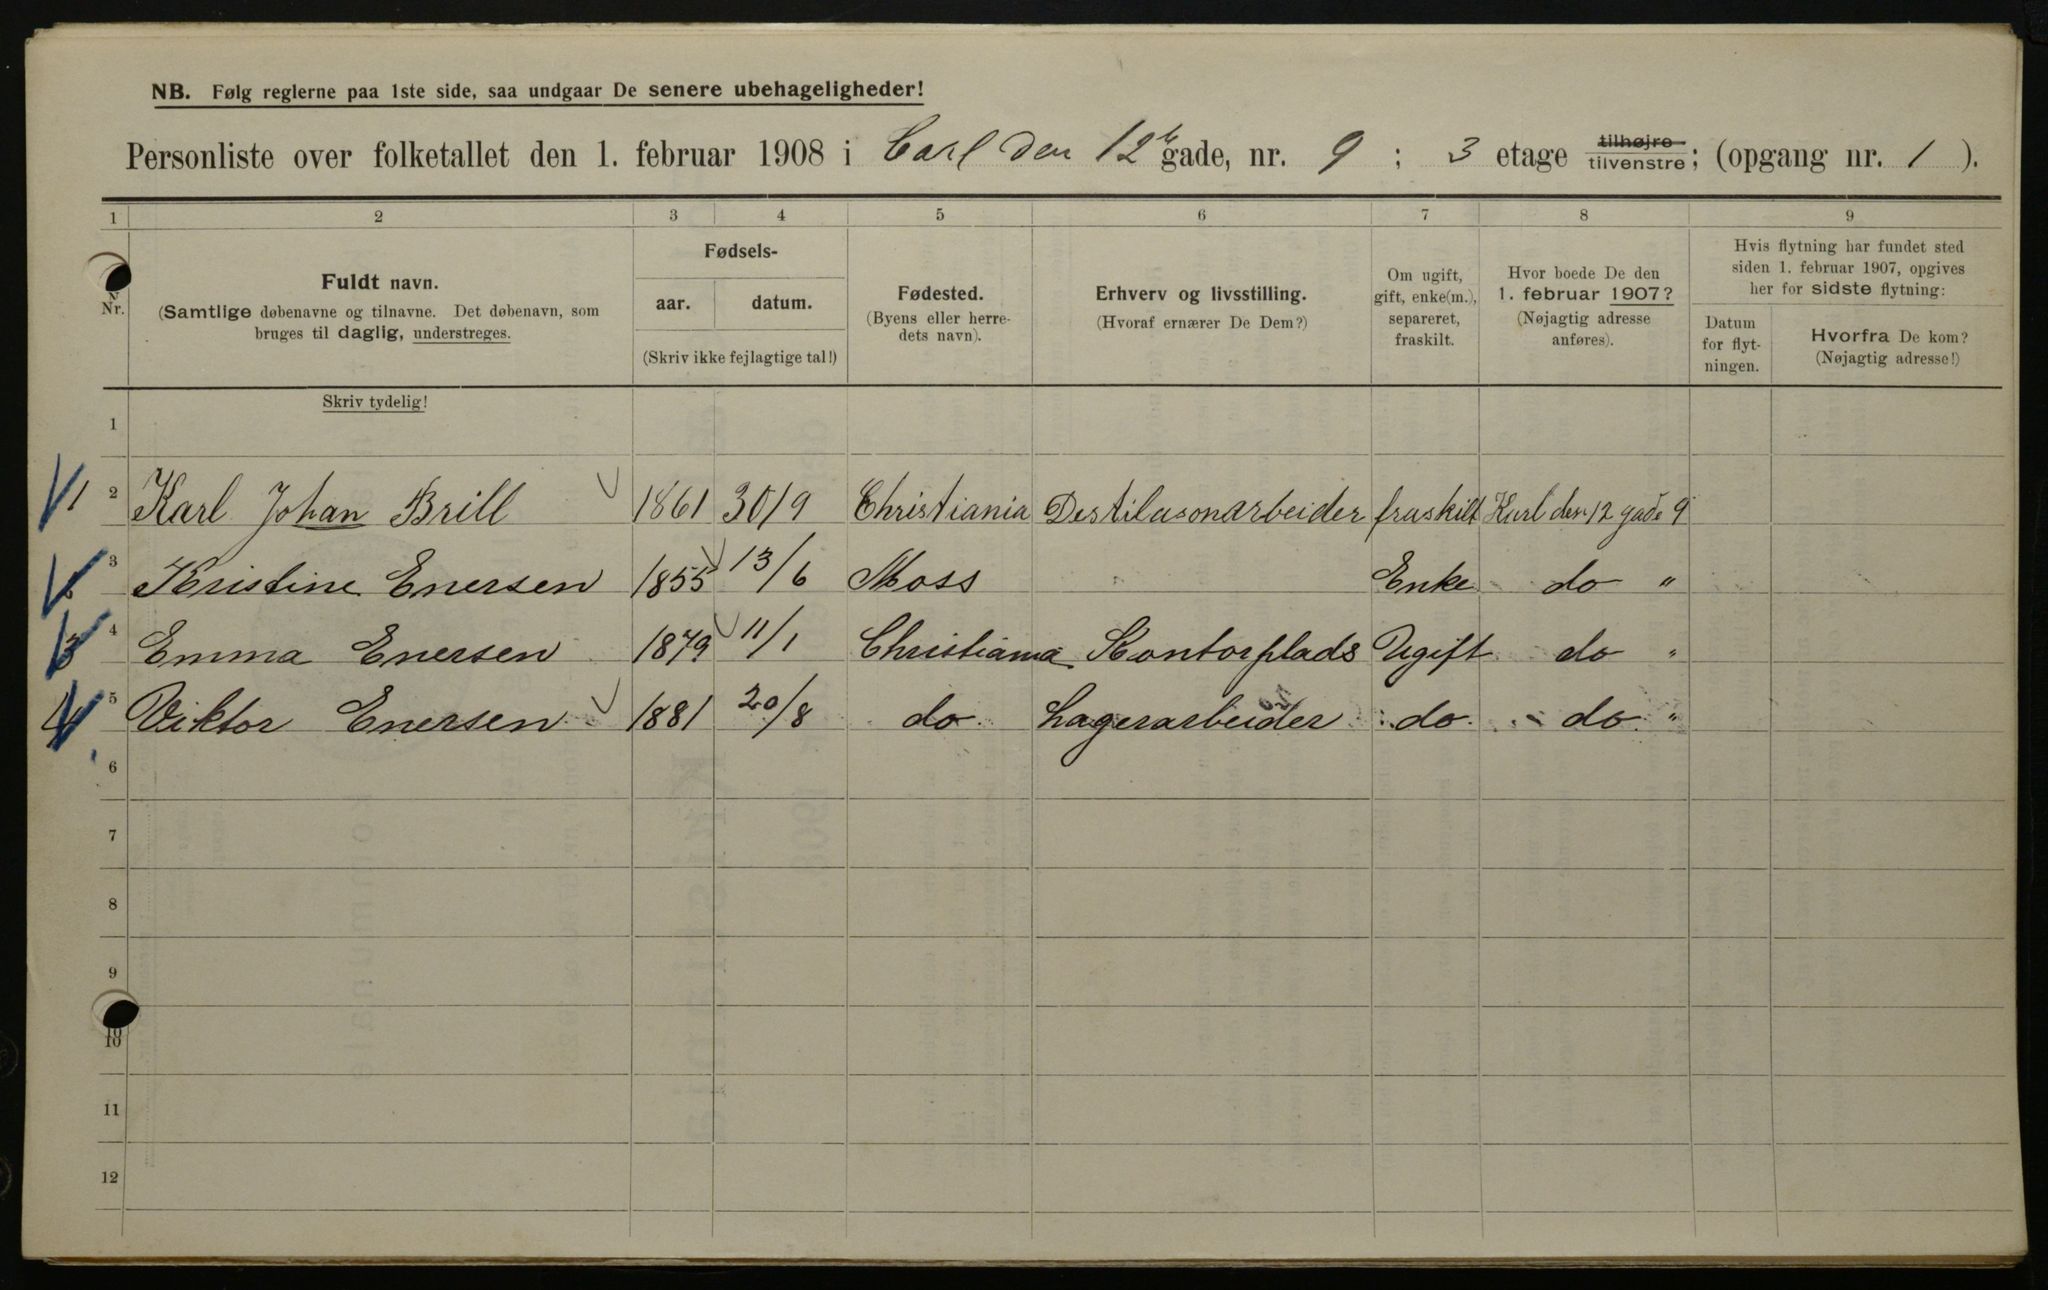 NB. Følg reglerne paa 1ste side, saa undgaar De senere ubehageligheder!
Personliste over folketallet den 1. februar 1908 i Carl den 12te gade, nr. 9 ; 3 etage tilhøjre tilvenstre; (opgang nr. 1 ).
1 2 3 4 5 6 7 8 9
Nr.
Fuldt navn.
(Samtlige døbenavne og tilnavne. Det døbenavn, som
bruges til daglig, understreges.
Skriv tydelig!
Fødsels-
aar. datum.
(Skriv ikke fejlagtige tal!)
Fødested.
(Byens eller herre-
dets navn).
Erhverv og livsstilling.
(Hvoraf ernærer De Dem?)
Om ugift,
gift, enke(m.),
separeret,
fraskilt.
Hvor boede De den
1. februar 1907?
(Nøjagtig adresse
anføres).
Hvis flytning har fundet sted
siden 1. februar 1907, opgives
her for sidste flytning:
Datum
for flyt-
ningen.
Hvorfra De kom?
(Nøjagtig adresse!)
1
1 2 Karl Johan Brill 1861 30/9 Christiania Destilasonarbeider fraskilt Karl den 12 gade 9
3 Kristine Enersen 1855 13/6 Moss Enke do "
3 4 Emma Enersen 1879 11/1 Christiania Kontorplads Ugift do "
4 5 Viktor Enersen 1881 20/8 do Lagerarbeider do do "
6
7
8
9
10
10
11
12